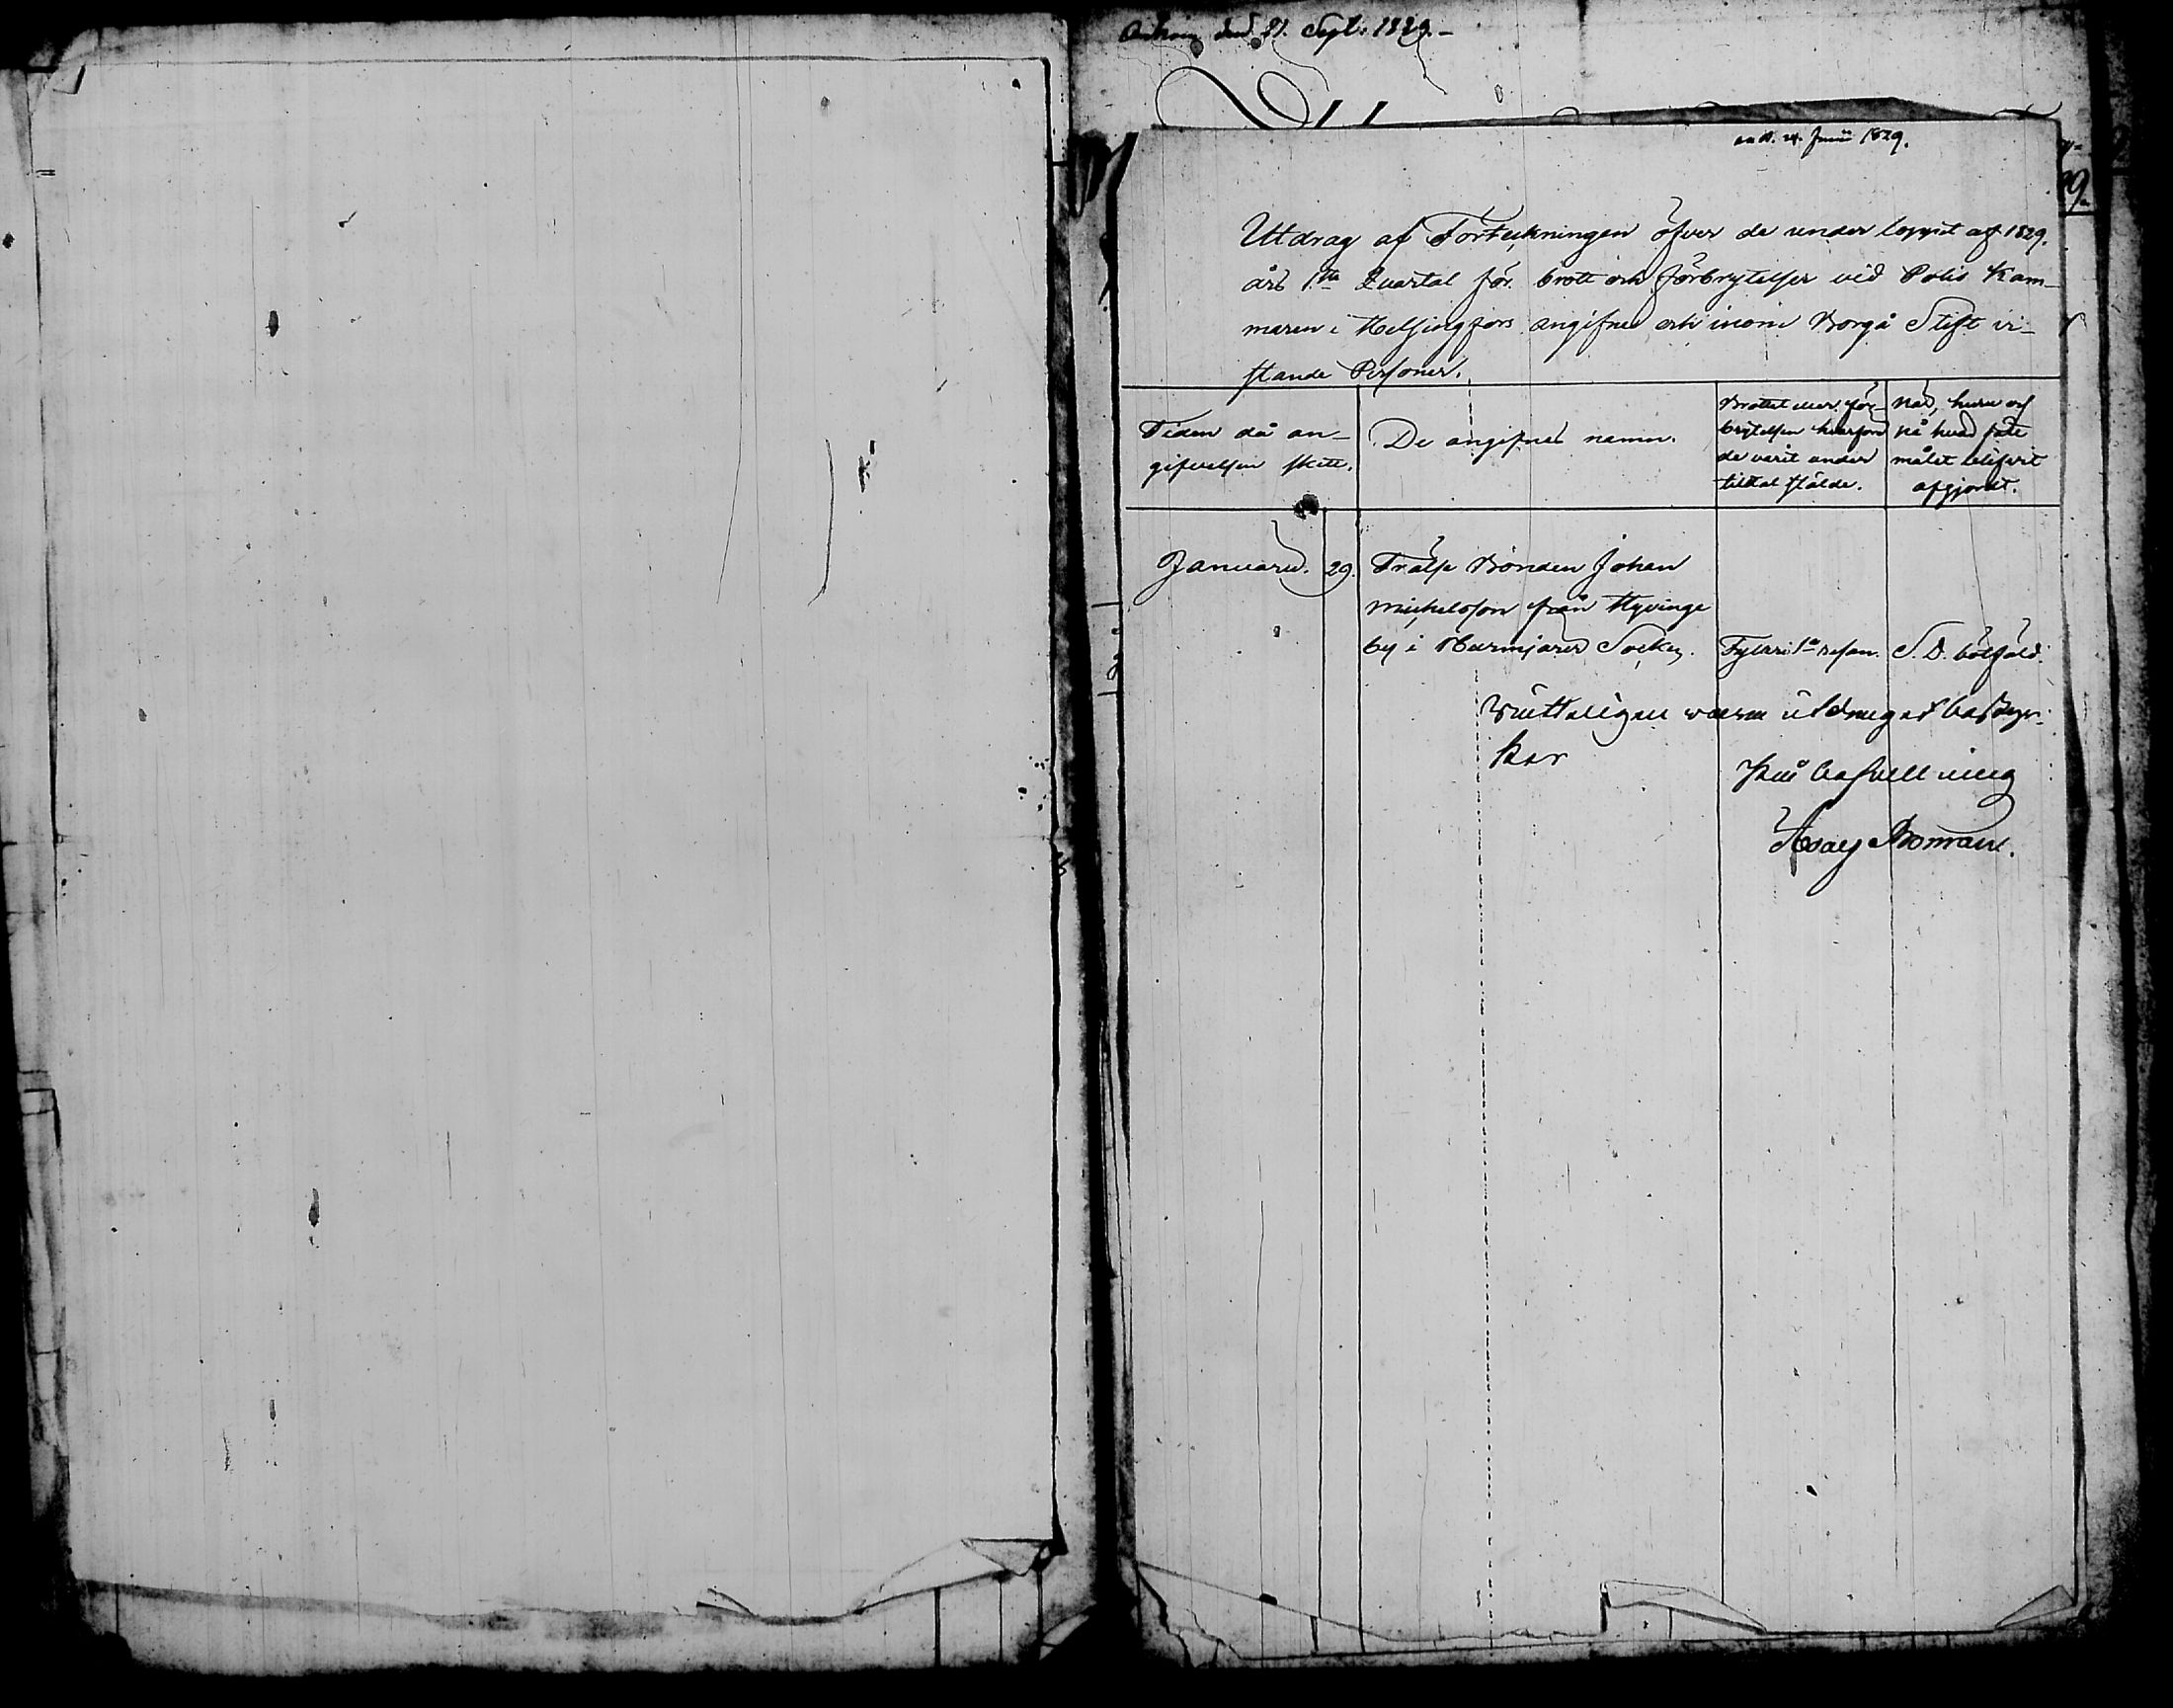 Ankom den 21. Sept. 1829.
ank. d. 24. Junii 1829.
Utdrag af Förteckningen öfver de under loppet af 1829.
års 1sta Quartal för brott och förbrytelser vid Polis Kam-
maren i Helsingfors angifne och inom Borgå Stift vi-
stande Personer.
Tiden då an-
gifvelsen skett.
De angifnes namn.
Brottet eller för-
brytelsen hvarfore
de varit under
tilltal stälde.
När, huru och
på hvad sätt
målet blifvit
afgjordt.
Januarii. 29. Frälse Bonden Johan
Michelsson från Hyvinge
by i Nurmijärvi Socken. Fylleri 1a resan. S. D. bötfäld.
Riktigheten af utdraget bestyr-
ker
På befallning
Boman.